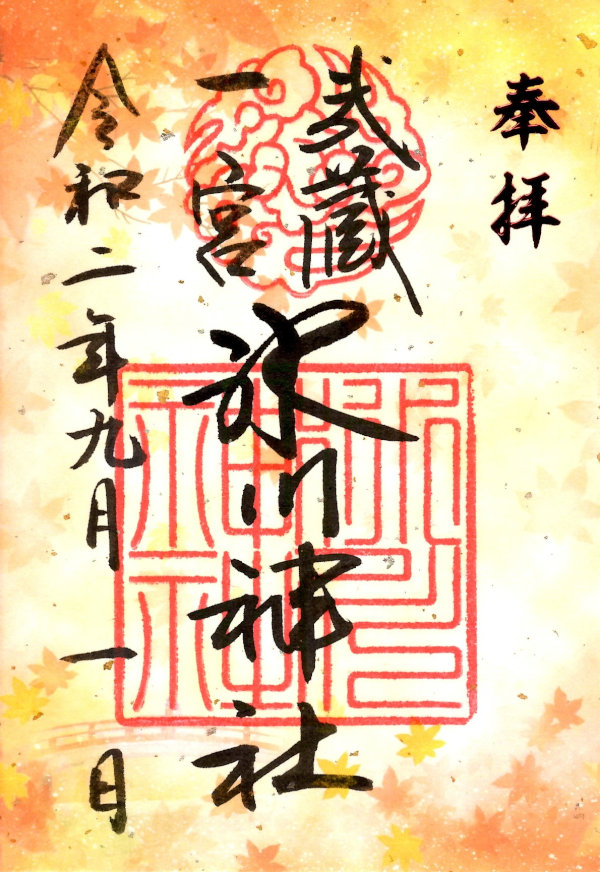 奉拝
武蔵
一宮
氷川神社
令和二年九月一日